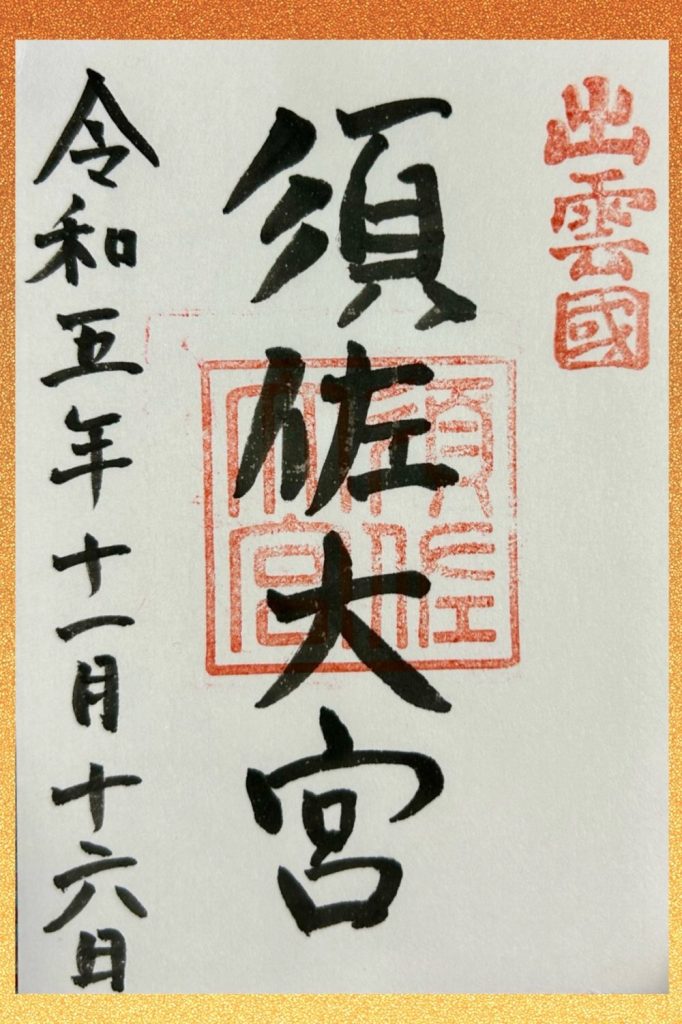 出雲國
須佐大宮
須佐大宮
令和五年十一月十六日